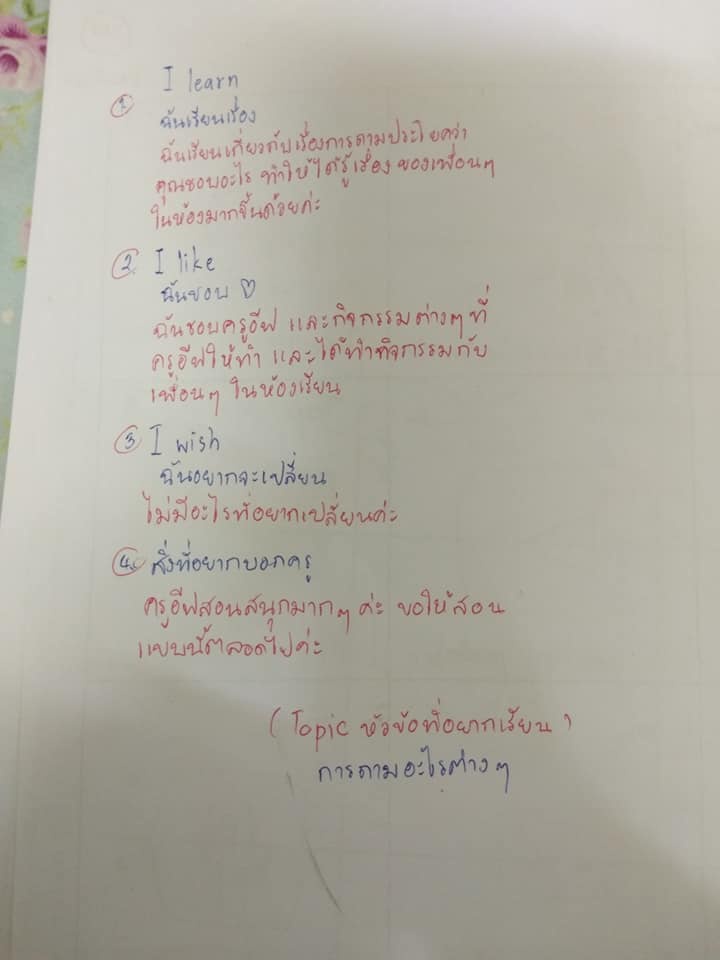 I learn
① ฉันเรียนเรื่อง
ฉันเรียนเกี่ยวกับเรื่องการถามประโยคว่า
คุณชอบอะไร ทำให้ได้รู้เรื่องของเพื่อนๆ
ในห้องมากขึ้นด้วยค่ะ
②. I like
ฉันชอบ ♡
ฉันชอบครูอีฟ และกิจกรรมต่างๆ ที่
ครูอีฟให้ทำ และได้ทำกิจกรรมกับ
เพื่อนๆ ในห้องเรียน
③ I wish
ฉันอยากจะเปลี่ยน
ไม่มีอะไรที่อยากเปลี่ยนค่ะ
④. สิ่งที่อยากบอกครู
ครูอีฟสอนสนุกมากๆ ค่ะ ขอให้สอน
แบบนี้ตลอดไปค่ะ
(Topic หัวข้อที่อยากเรียน)
การถามอะไรต่างๆ